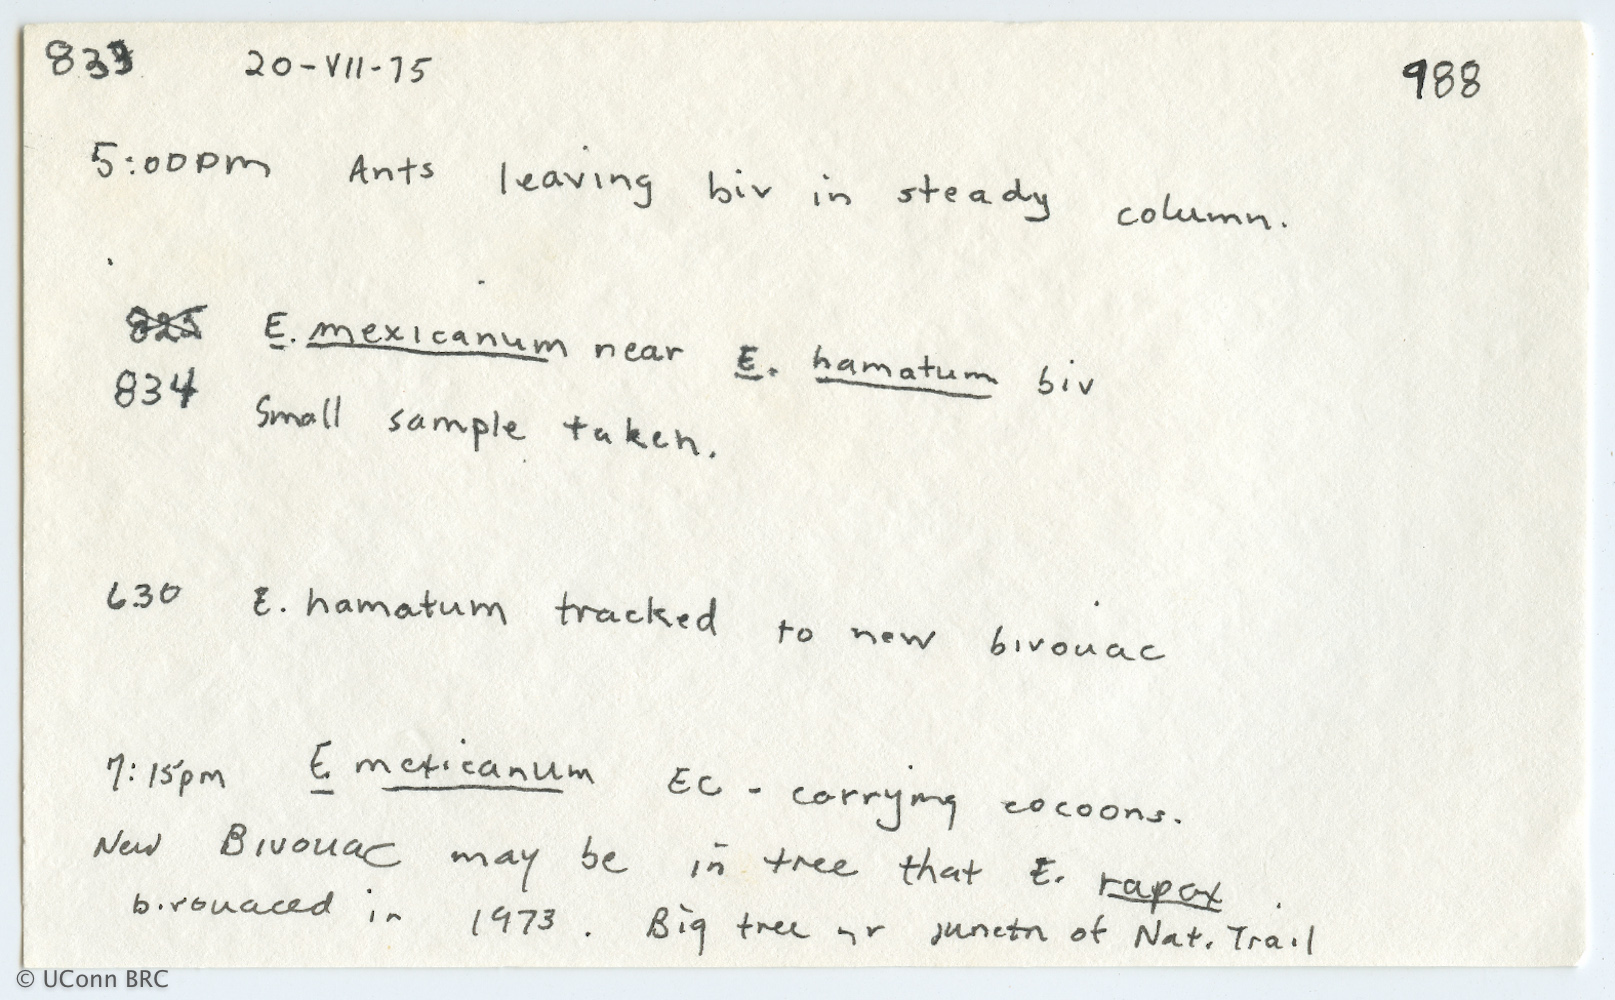 833 20-VII-75 988
5:00pm Ants leaving biv in steady column.
825 E. mexicanum near E. hamatum biv
834 Small sample taken.
630 E. hamatum tracked to new bivouac
7:15pm E. mexicanum EC - carrying cocoons.
New Bivouac may be in tree that E. rapax
bivouaced in 1973. Big tree nr junctn of Nat. Trail
© UConn BRC